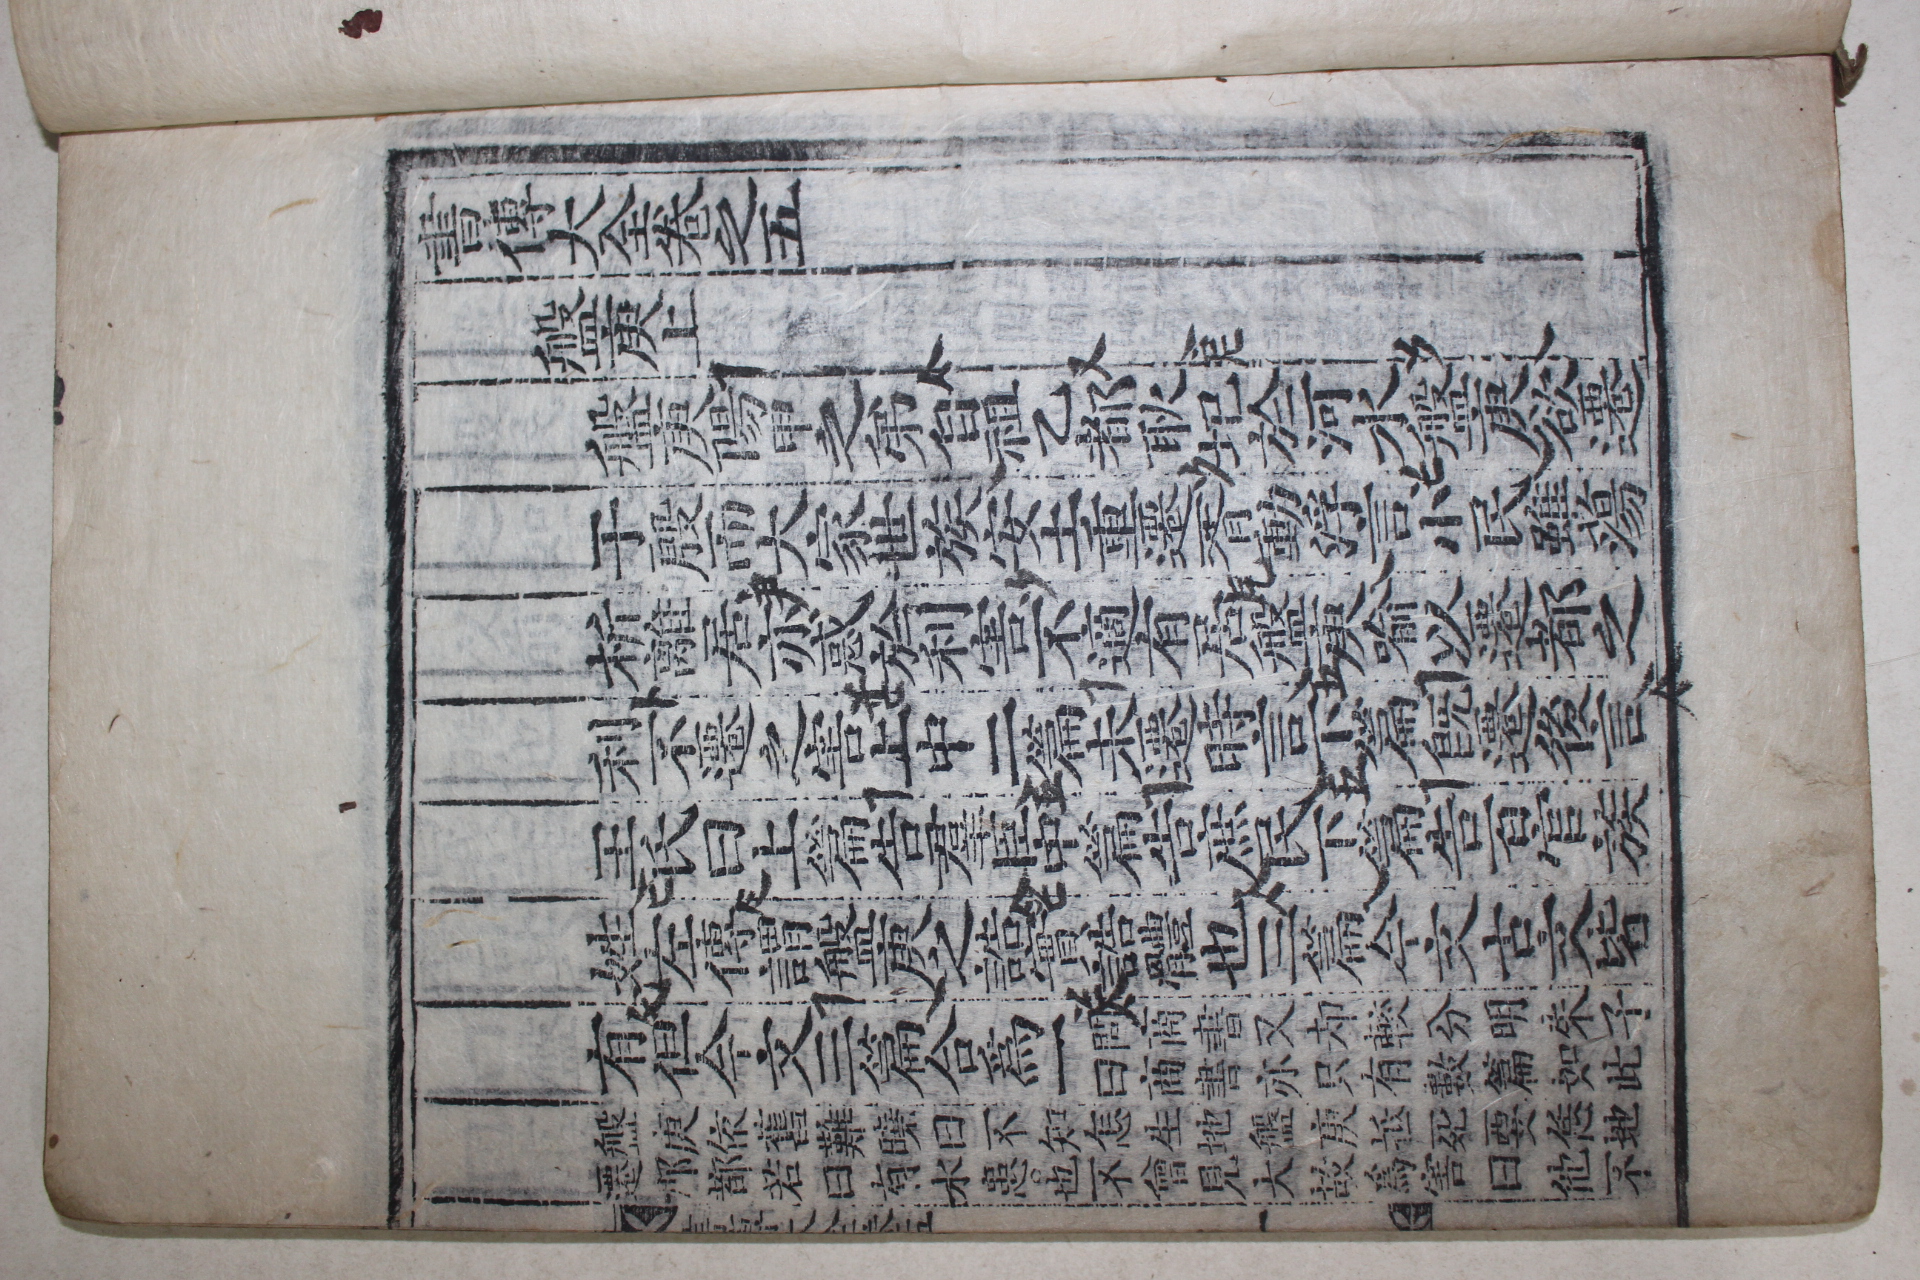 書傳大全卷之五
盤庚上
盤庚陽甲之弟自祖乙都耿圯於河水盤庚欲遷
于殷而大家世族安土重遷胥動浮言小民雖蕩
析離居亦惑於利害不適有居盤庚喻以遷都之
利不遷之害上中二篇未遷時言下篇旣遷後言
王氏曰上篇告羣臣中篇告庶民下篇告百官族
姓左傳謂盤庚之誥實誥體也三篇今文古文皆
有但今文三篇合爲一
問商書又却較分明朱子
曰商書亦只有數篇如此
盤庚依舊難曉曰不知怎生地盤庚抵死要恁地
遷那都若曰有水患也不曾見大故爲害曰他不